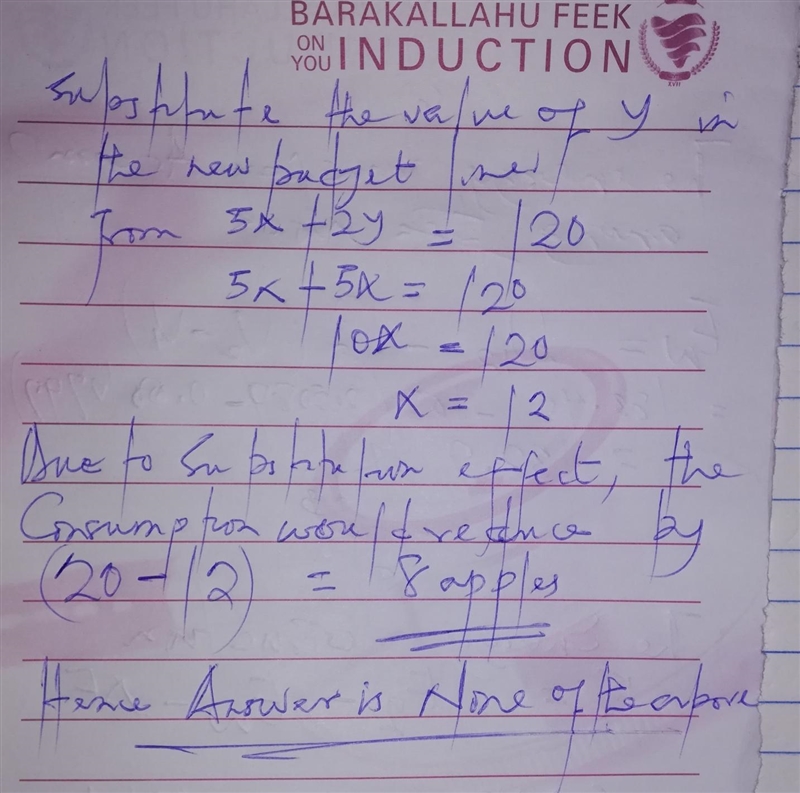 BARAKALLAHU FEEK
ON
YOU INDUCTION
Substitute the value of y in
the new budget line
From 5x + 2y = 120
5x + 5x = 120
10x = 120
x = 12
Due to Substitution effect, the
Consumption would reduce by
(20 - 12) = 8 apples
Hence Answer is None of the above